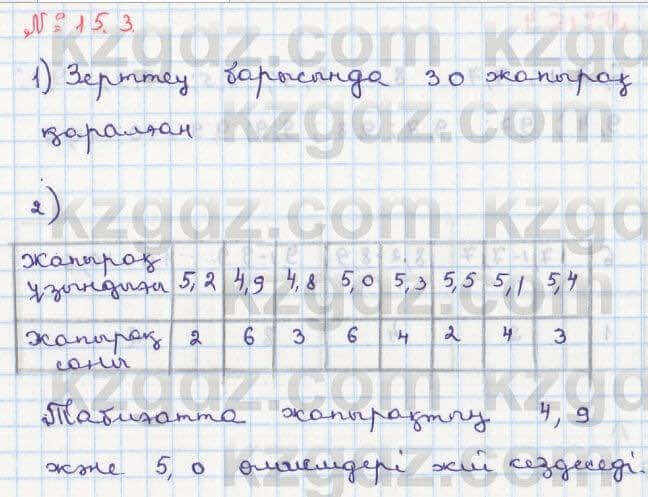 № 15.3.
1) Зерттеу барысында 30 жапырақ
қаралған
2)
жапырақ
ұзындығы 5,2 4,9 4,8 5,0 5,3 5,5 5,1 5,4
жапырақ
саны 2 6 3 6 4 2 4 3
Табиғатта жапырақтың 4,9
және 5,0 өлшемдері жиі кездеседі.
kzgdz.com